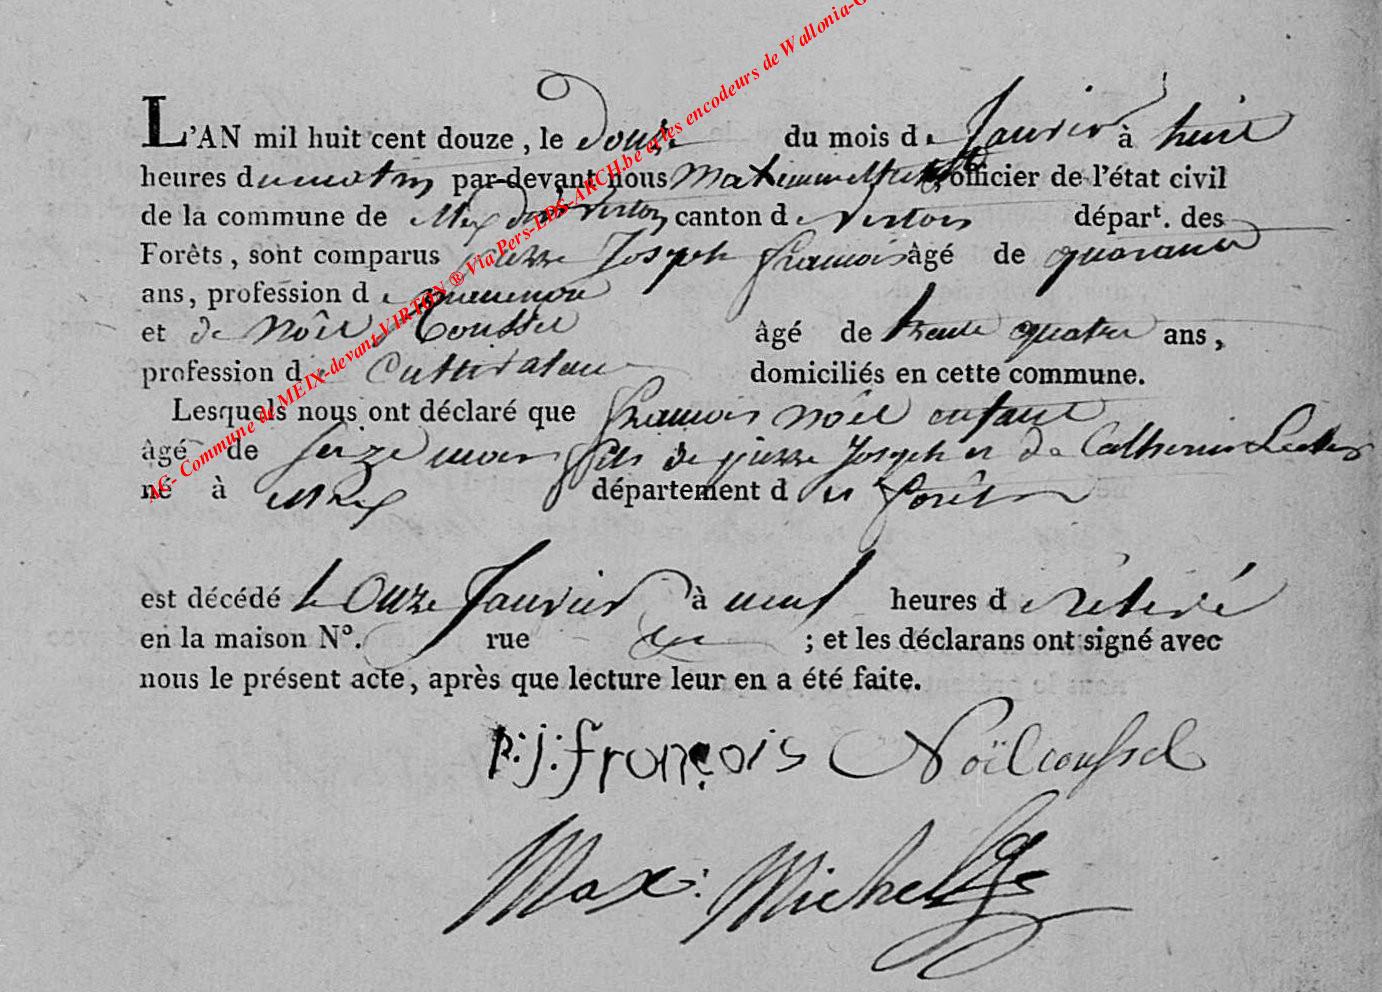 L'AN mil huit cent douze, le douze du mois de Janvier à huit
heures du matin par-devant nous officier de l'état civil
de la commune de Meix devant Virton canton de Virton départ. des
Forêts, sont comparus pierre Joseph francois âgé de quarante
ans, profession de
et de Noël Coussel âgé de trente quatre ans,
profession de Cultivateur domiciliés en cette commune.
Lesquels nous ont déclaré que francois Noël enfant
âgé de seize mois fils de pierre Joseph et de Catherine
né à Meix département des forêts
est décédé le Onze Janvier à neuf heures de
en la maison N°. rue ; et les déclarans ont signé avec
nous le présent acte, après que lecture leur en a été faite.
p:j:françois Noël coussel
Max: Michel
AC- Commune de MEIX-devant-VIRTON ® Via Pers-LDS-ARCH.be et les encodeurs de Wallonia-G